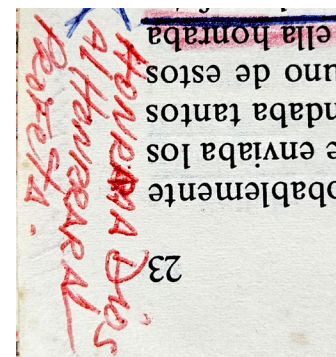 23
obablemente
e enviaba los
ndaba tantos
uno de estos
ella honraba
HONRRA A DIOS
AL HONRRAR AL
PROFETA.